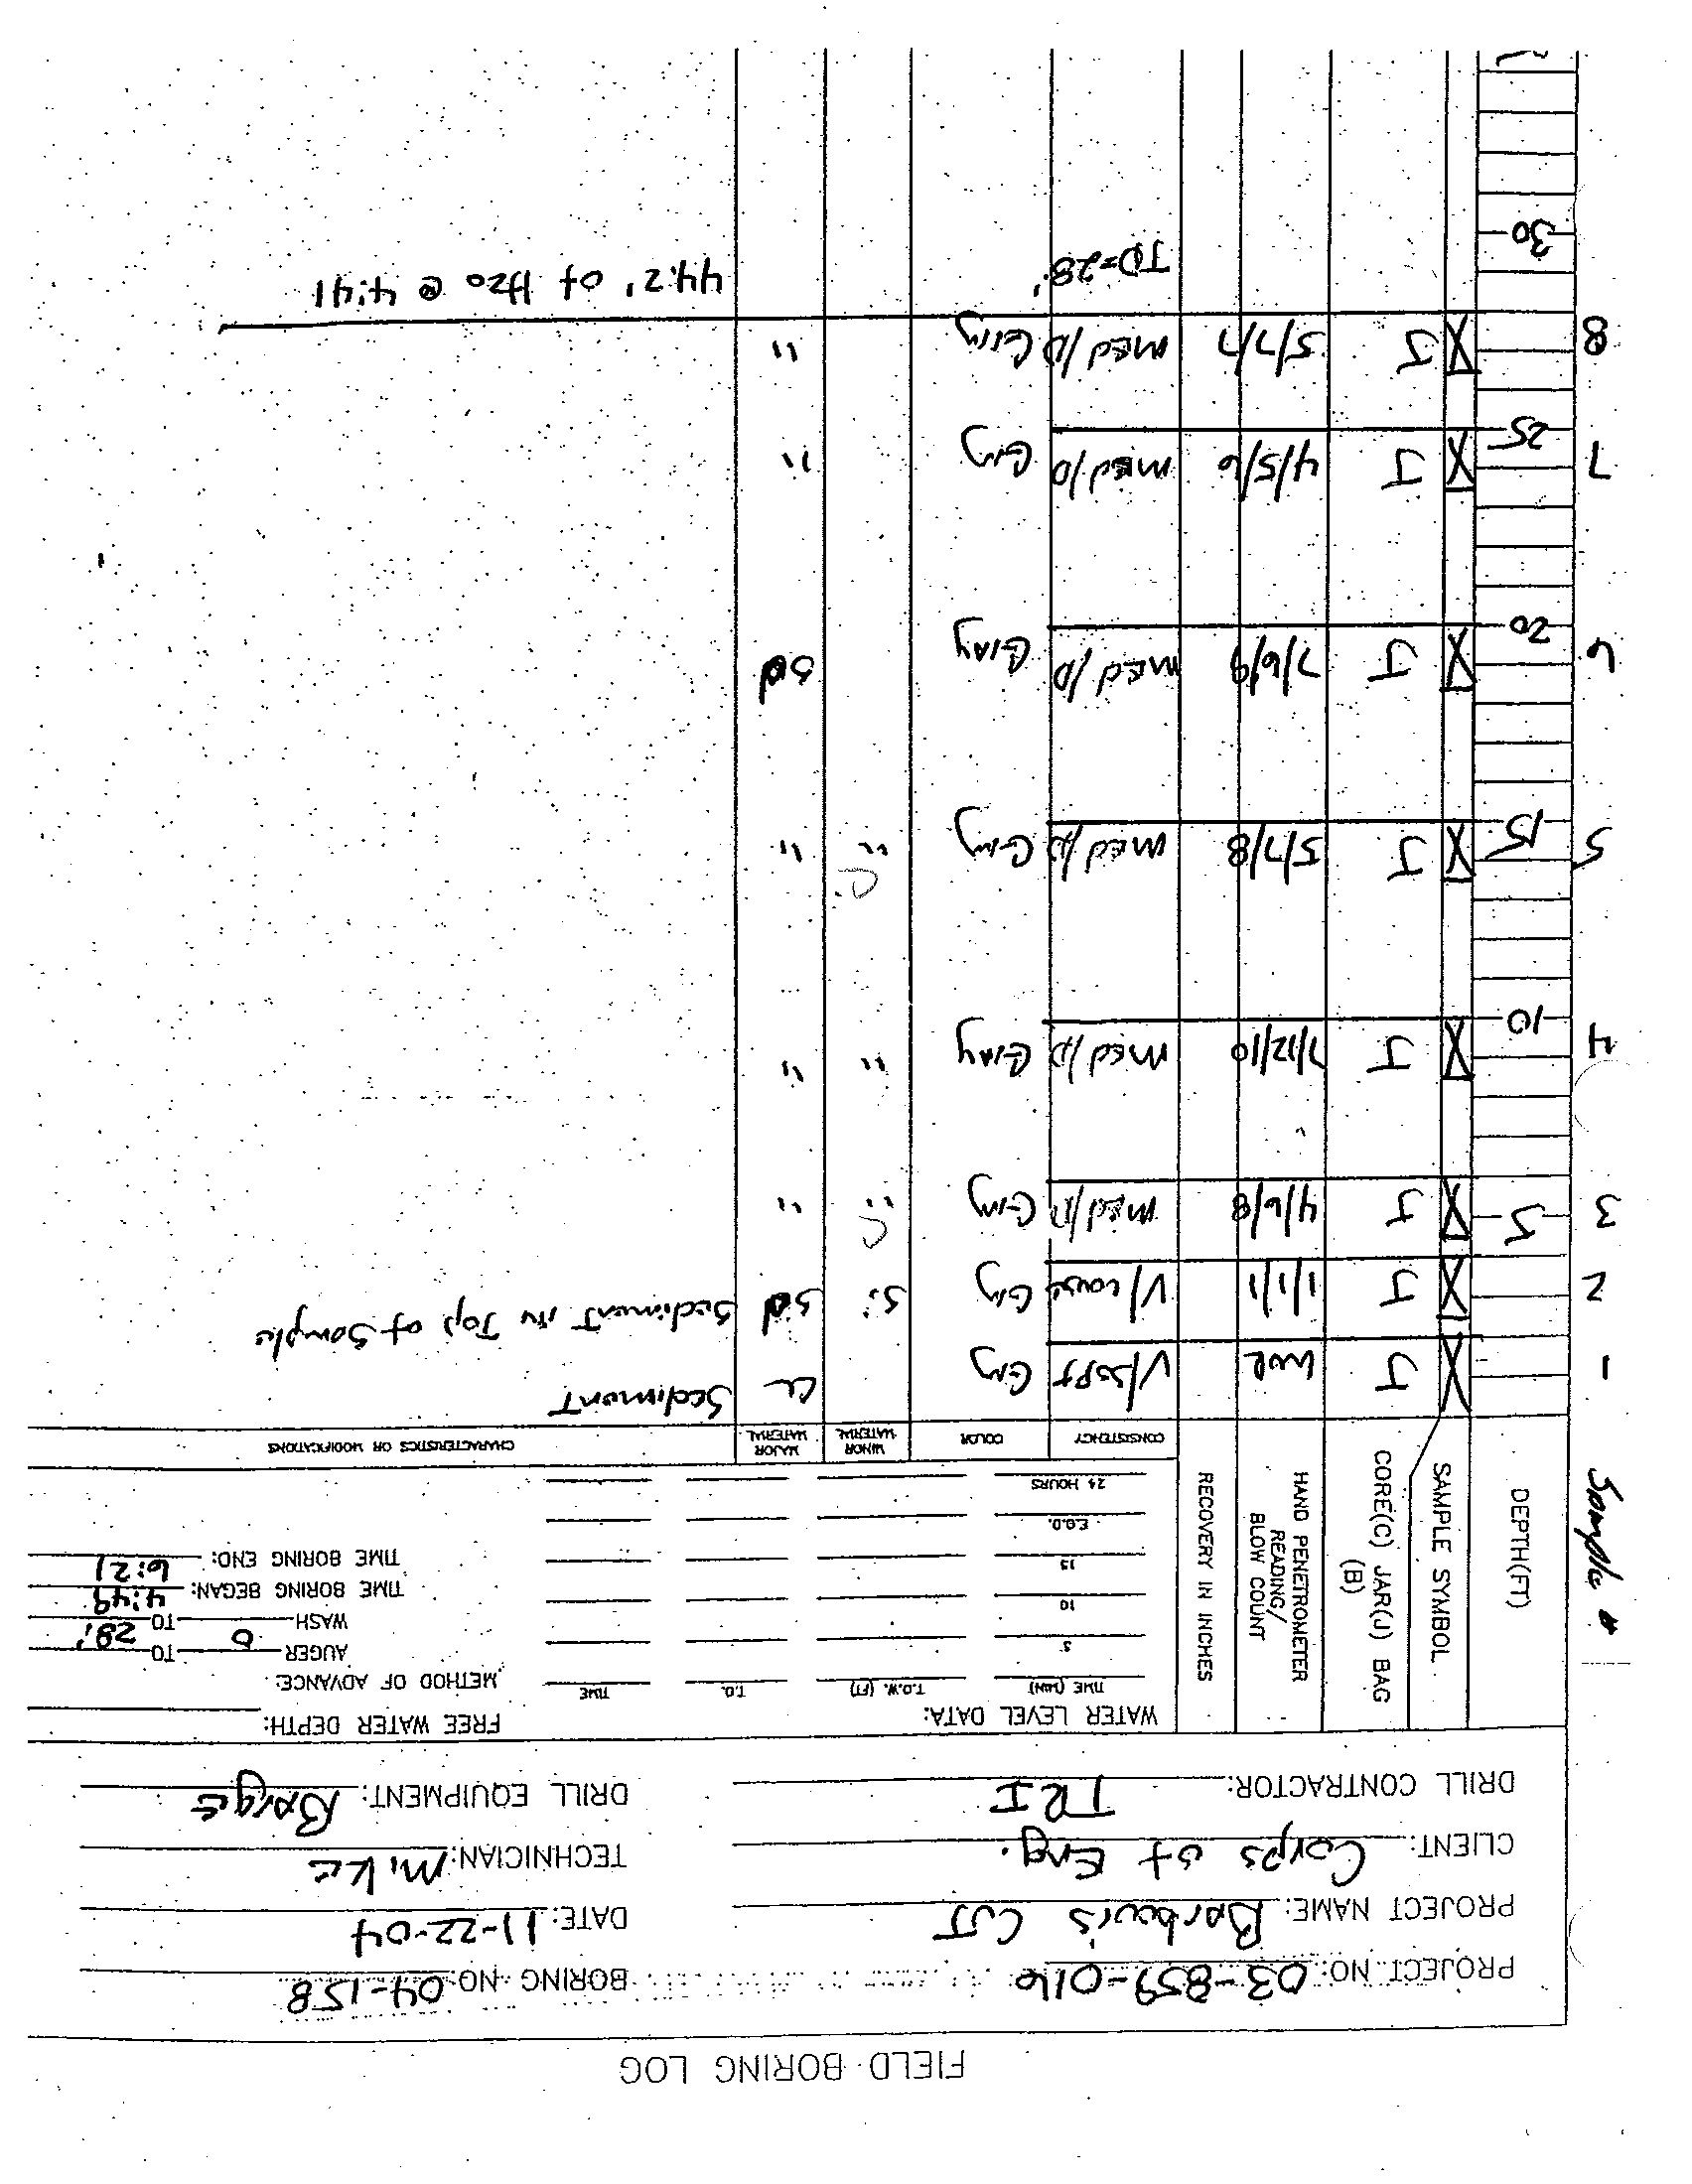 FIELD BORING LOG
PROJECT NO: 03-859-016 BORING NO: 04-158
PROJECT NAME: Barbour's CUT DATE: 11-22-04
CLIENT: Corps of Eng. TECHNICIAN: Mike
DRILL CONTRACTOR: TRI DRILL EQUIPMENT: Barge
WATER LEVEL DATA: FREE WATER DEPTH:
TIME (MIN) T.O.W. (FT) T.D. TIME METHOD OF ADVANCE:
5 AUGER TO
10 WASH 0 TO 28'
15 TIME BORING BEGAN: 4:49
E.O.D. TIME BORING END: 6:21
24 HOURS
Sample # DEPTH(FT) SAMPLE SYMBOL CORE(C) JAR(J) BAG (B) HAND PENETROMETER READING/ BLOW COUNT RECOVERY IN INCHES CONSISTENCY COLOR MINOR MATERIAL MAJOR MATERIAL CHARACTERISTICS OR MODIFICATIONS
1 J WOR V/Soft Gry CL Sediment
2 J 1/1/1 V/Loose Gry Si Sd Sediment in Top of Sample
3 5 J 4/6/8 Med/D Gry " "
4 10 J 7/12/10 Med/D Gray " "
5 15 J 5/7/8 Med/D Gry " "
6 20 J 7/6/9 Med/D Gray Sd
7 25 J 4/5/6 Med/D Gry "
8 J 5/7/7 Med/D Gry "
TD=28' 44.2' of H20 @ 4:41
30